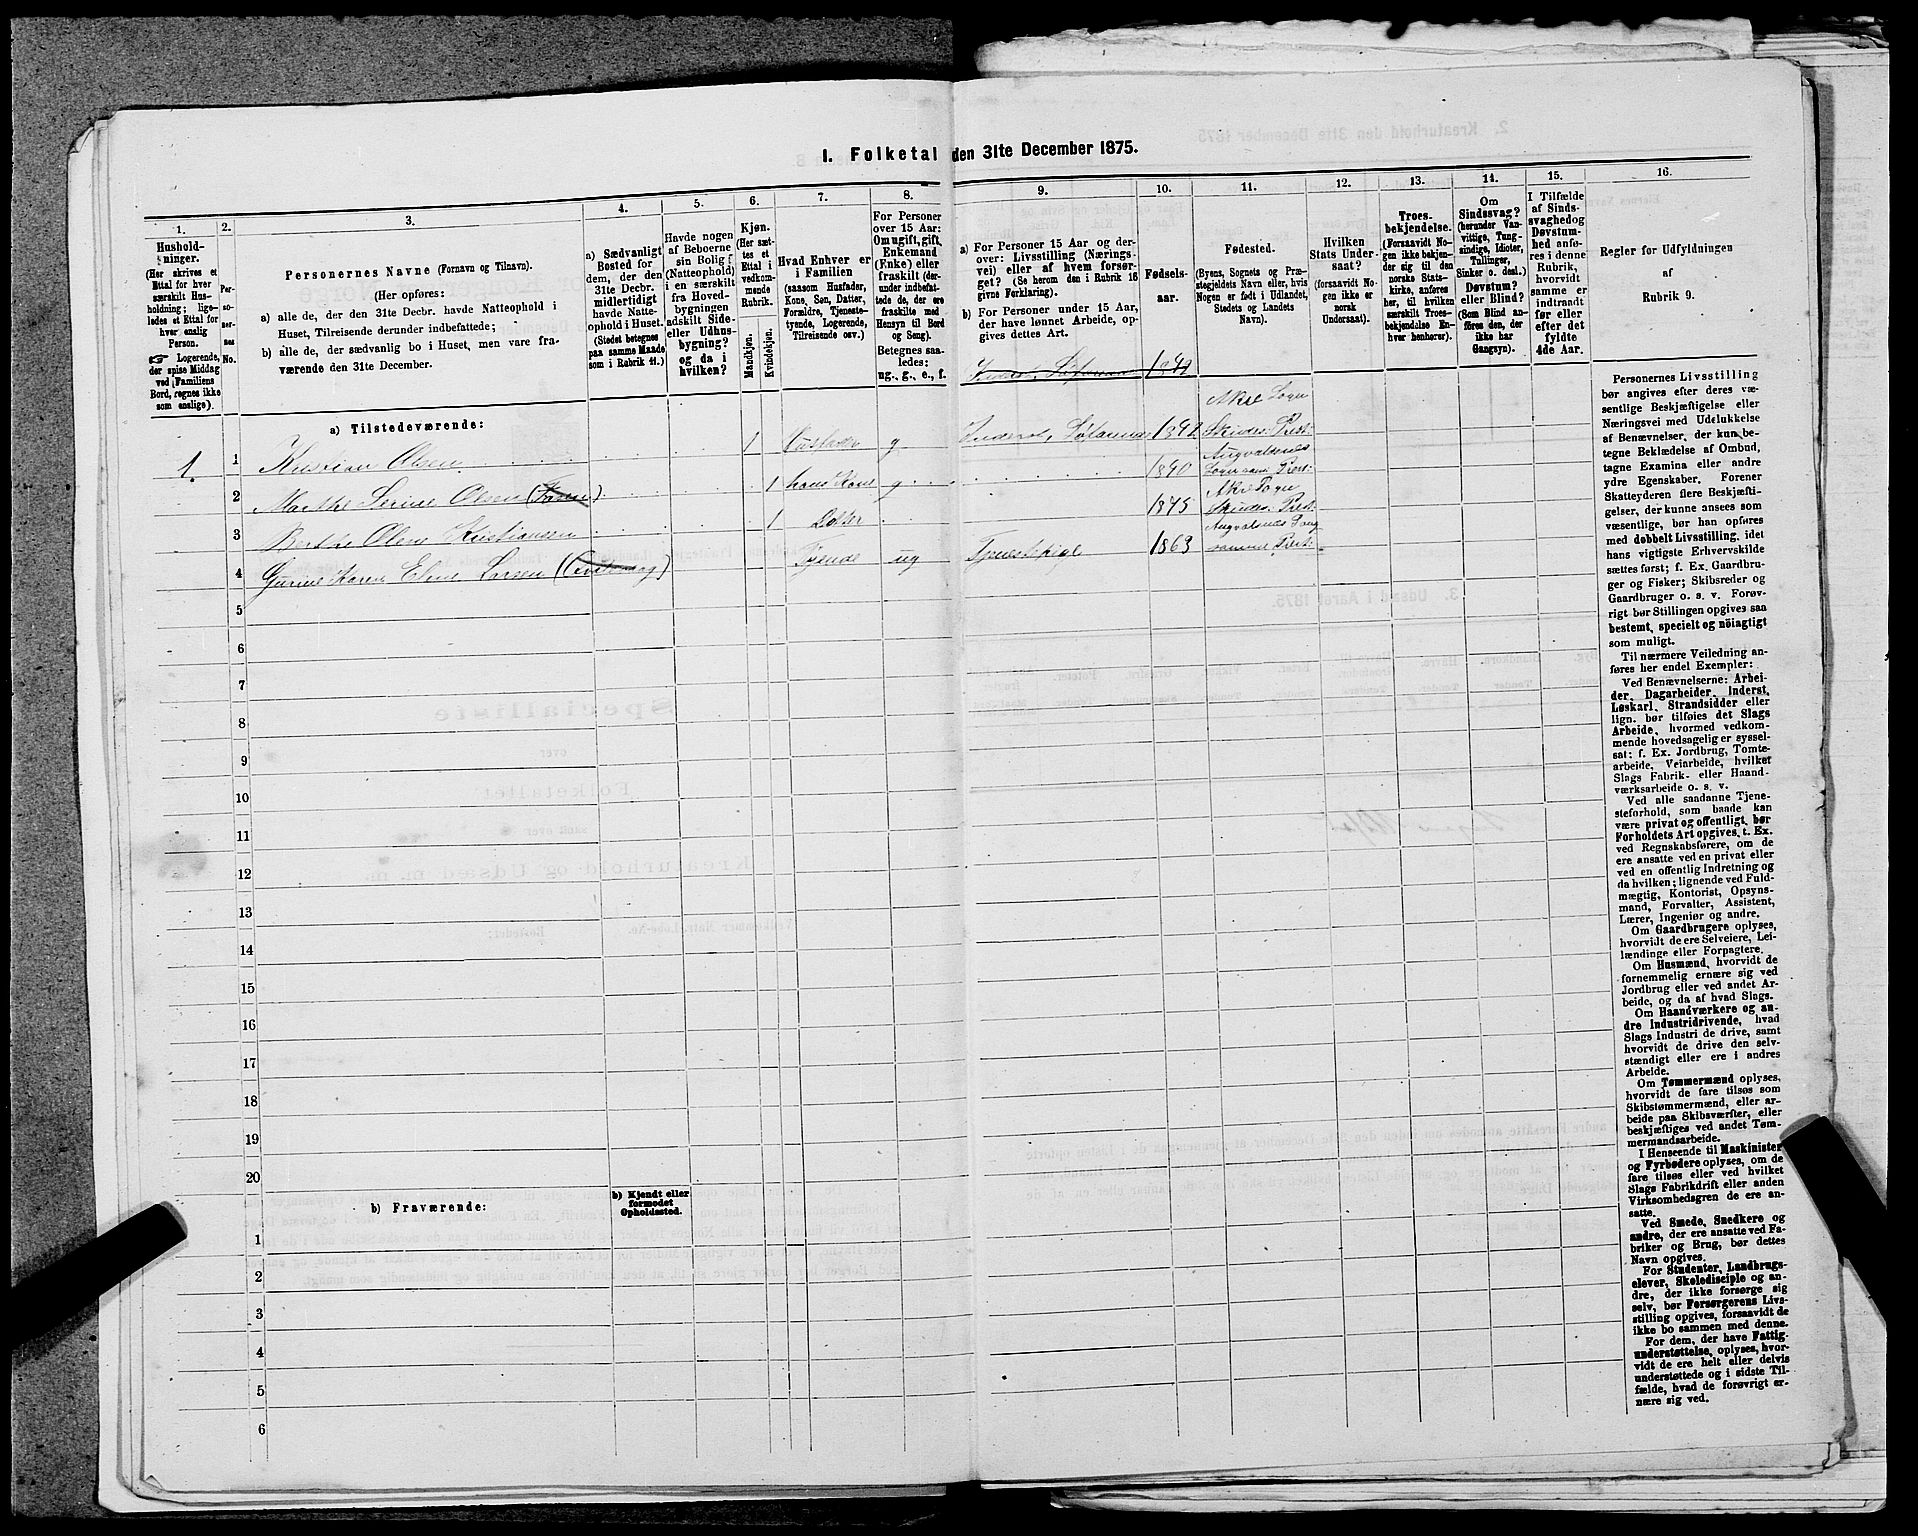 1. Folketal den 31te December 1875.
1.
Hushold-
ninger.
(Her skrives et
Ettal for hver
særskilt Hus-
holdning; lige-
ledes et Ettal for
hver enslig
Person.
☞ Logerende,
der spise Middag
ved Familiens
Bord, regnes ikke
som enslige).
2.
Per-
so-
ner-
nes
No.
3.
Personernes Navne (Fornavn og Tilnavn).
(Her opføres:
a) alle de, der den 31te Decbr. havde Natteophold i
Huset, Tilreisende derunder indbefattede;
b) alle de, der sædvanlig bo i Huset, men vare fra-
værende den 31te December.
4.
a) Sædvanligt
Bosted for
dem, der den
31te Decbr.
midlertidigt
havde Natte-
ophold i Huset.
(Stedet betegnes
paa samme Maade
som i Rubrik 11.)
5.
Havde nogen
af Beboerne
sin Bolig
(Natteophold)
i en særskilt
fra Hoved-
bygningen
adskilt Side-
eller Udhus-
bygning?
og da i
hvilken?
6.
Kjøn.
(Her sæt-
tes et
Ettal i
vedkom-
mende
Rubrik.
Mandkjøn.
Kvindekjøn.
7.
Hvad Enhver er
i Familien
(saasom Husfader,
Kone, Søn, Datter,
Forældre, Tjeneste-
tyende, Logerende,
Tilreisende osv.)
8.
For Personer
over 15 Aar:
Om ugift, gift,
Enkemand
(Enke) eller
fraskilt (der-
under indbefat-
tede de, der ere
fraskilte med
Hensyn til Bord
og Seng).
Betegnes saa-
ledes:
ug., g., e., f.
9.
a) For Personer 15 Aar og der-
over: Livsstilling (Nærings-
vei) eller af hvem forsør-
get? (Se herom den i Rubrik 16
givne Forklaring).
b) For Personer under 15 Aar,
der have lønnet Arbeide, op-
gives dettes Art.
10.
Fødsels-
aar.
11.
Fødested.
(Byens, Sognets og Præ-
stegjeldets Navn eller, hvis
Nogen er født i Udlandet,
Stedets og Landets
Navn).
12.
Hvilken
Stats Under-
saat?
(forsaavidt No-
gen ikke er
norsk
Undersaat).
13.
Troes-
bekjendelse.
(Forsaavidt No-
gen ikke bekjen-
der sig til den
norske Stats-
kirke, anføres
her, til hvilken
særskilt Troes-
bekjendelse En-
hver henhører).
14.
Om
Sindssvag?
(herunder Van-
vittige, Tung-
sindige, Idioter,
Tullinger,
Sinker o. desl.)
Døvstum?
eller Blind?
(Som Blind an-
føres den, der
ikke har
Gangsyn).
15.
I Tilfælde
af Sinds-
svaghed og
Døvstum-
hed anfø-
res i denne
Rubrik,
hvorvidt
samme er
indtraadt
før eller
efter det
fyldte
4de Aar.
16.
Regler for Udfyldningen
af
Rubrik 9.
a) Tilstedeværende:
Inderst, 1842
1. 1 Kristian Olsen 1 Husfader g Inderst, 1842 Akre Sogn Skudes: Prest:
2 Marthe Serine Olsen 1 hans Kone g 1840 Augvaldsnes Sogn samt Prest:
3 Berthe Olene Kristiansen 1 Datter 1875 Akre Sogn Skudes: Prest:
4 Gurine Karen Eline Larsen 1 Tyende ug Tjenestepige 1863 Augvalsnes Sogn samme Prest:
5
6
7
8
9
10
11
12
13
14
15
16
17
18
19
20
b) Fraværende:
b) Kjendt eller
formodet
Opholdssted.
1
2
3
4
5
6
Personernes Livsstilling
bør angives efter deres væ-
sentlige Beskjæftigelse eller
Næringsvei med Udelukkelse
af Benævnelser, der kun be-
tegne Beklædelse af Ombud,
tagne Examina eller andre
ydre Egenskaber. Forener
Skatteyderen flere Beskjæfti-
gelser, der kunne ansees som
væsentlige, bør han opføres
med dobbelt Livsstilling, idet
hans vigtigste Erhvervskilde
sættes først; f. Ex. Gaardbru-
ger og Fisker; Skibsreder og
Gaardbruger o. s. v. Forøv-
rigt bør Stillingen opgives saa
bestemt, specielt og nöiagtigt
som muligt.
Til nærmere Veiledning an-
føres her endel Exempler:
Ved Benævnelserne: Arbei-
der, Dagarbeider, Inderst,
Løskarl, Strandsidder eller
lign. bør tilføies det Slags
Arbeide, hvormed vedkom-
mende hovedsagelig er syssel-
sat; f. Ex. Jordbrug, Tomte-
arbeide, Veiarbeide, hvilket
Slags Fabrik- eller Haand-
værksarbeide o. s. v.
Ved alle saadanne Tjene-
steforhold, som baade kan
være privat og offentligt, bør
Forholdets Art opgives, t. Ex.
ved Regnskabsførere, om de
ere ansatte ved en privat eller
ved en offentlig Indretning og
da hvilken; lignende ved Fuld-
mægtig, Kontorist, Opsyns-
mand, Forvalter, Assistent,
Lærer, Ingeniør og andre.
Om Gaardbrugere oplyses,
hvorvidt de ere Selveiere, Lei-
lændinge eller Forpagtere.
Om Husmænd, hvorvidt de
fornemmelig ernære sig ved
Jordbrug eller ved andet Ar-
beide, og da af hvad Slags.
Om Haandværkere og an-
dre Industridrivende, hvad
Slags Industri de drive, samt
hvorvidt de drive den selv-
stændigt eller ere i andres
Arbeide.
Om Tømmermænd oplyses,
hvorvidt de fare tilsøs som
Skibstømmermænd, eller ar-
beide paa Skibsværfter, eller
beskjæftiges ved andet Tøm-
mermandsarbeide.
I Henseende til Maskinister
og Fyrbødere oplyses, om de
fare tilsøs eller ved hvilket
Slags Fabrikdrift eller anden
Virksomhedsgren de ere an-
satte.
Ved Smede, Snedkere og
andre, der ere ansatte ved Fa-
briker og Brug, bør dettes
Navn opgives.
For Studenter, Landbrugs-
elever, Skoledisciple og an-
dre, der ikke forsørge sig
selv, bør Forsørgerens Livs-
stilling opgives, forsaavidt de
ikke bo sammen med denne.
For dem, der have Fattig-
understøttelse, oplyses, hvor-
vidt de ere helt eller delvis
understøttede og i sidste Til-
fælde, hvad de forøvrigt er-
nære sig ved.